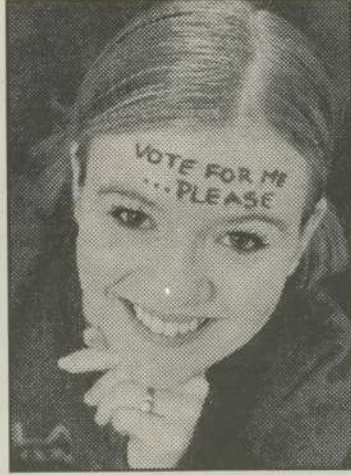 VOTE FOR ME
...PLEASE